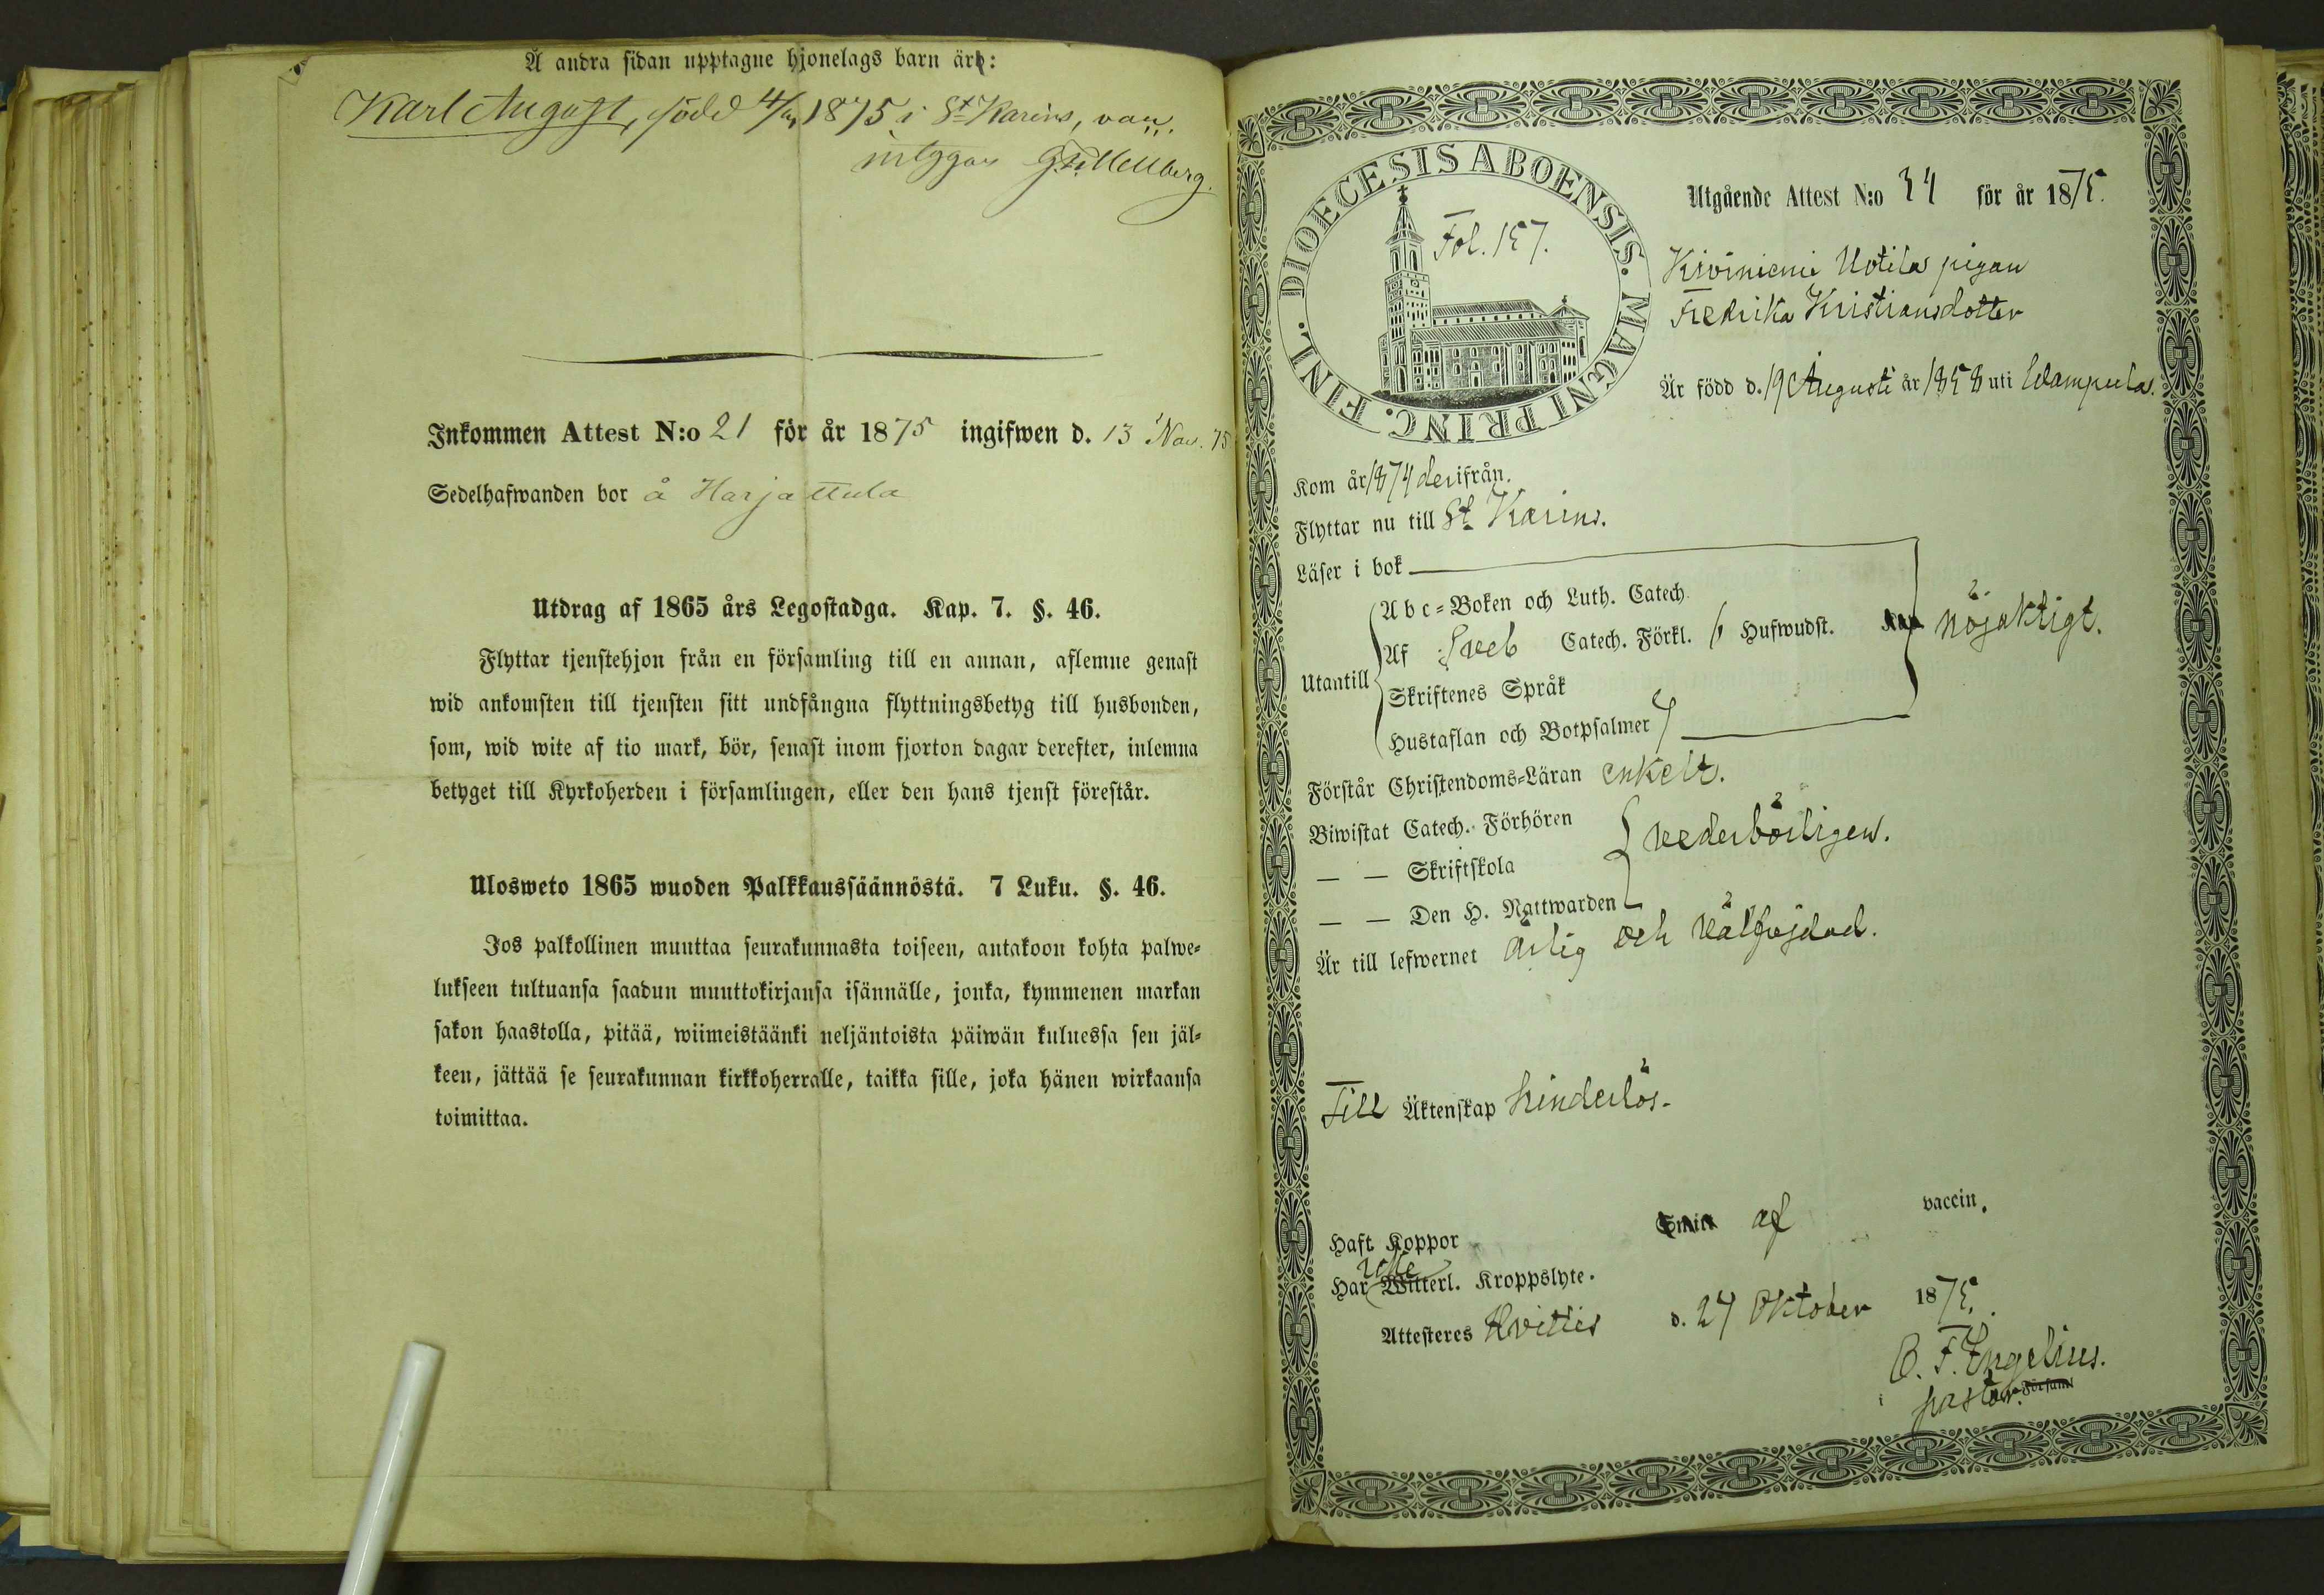 Å andra sidan upptagne hjonelags barn är:
Karl August, född 4/ 1875 i St Karins, vac.
intygar G. F. Mellberg.
Inkommen Attest N:o 21 för år 1875 ingifwen d. 13 Nov. 75
Sedelhafwanden bor å Harjattula
Utdrag af 1865 års Legostadga. Kap. 7. §. 46.
Flyttar tjenstehjon från en församling till en annan, aflemne genast
wid ankomsten till tjensten sitt undfångna flyttningsbetyg till husbonden,
som, wid wite af tio mark, bör, senast inom fjorton dagar derefter, inlemna
betyget till Kyrkoherden i församlingen, eller den hans tjenst förestår.
Ulosweto 1865 wuoden Palkkaussäännöstä. 7 Luku. §. 46.
Jos palkollinen muuttaa seurakunnasta toiseen, antakoon kohta palwe-
lukseen tultuansa saadun muuttokirjansa isännälle, jonka, kymmenen markan
sakon haastolla, pitää, wiimeistäänki neljäntoista päiwän kuluessa sen jäl-
keen, jättää se seurakunnan kirkkoherralle, taikka sille, joka hänen wirkaansa
toimittaa.
DIOECESIS ABOENSIS. MAGNI PRINC. FINL.
Fol. 157.
Utgående Attest N:o 34 för år 1875.
Kiviniemi Uotila pigan
Fredrika Kristiansdotter
Är född d. 19 Augusti år 1858 uti Wampula.
Kom år 1874 derifrån.
Flyttar nu till St Karins.
Läser i bok
Utantill
Abc-Boken och Luth. Catech.
Af Sveb Catech. Förkl. 6 Hufwudst. Kap
Skriftenes Språk
Hustaflan och Botpsalmer
nöjaktigt.
Förstår Christendoms-Läran enkelt.
Biwistat Catech. Förhören
— — Skriftskola
— — Den H. Nattwarden
vederbörligen.
Är till lefwernet ärlig och välfrejdad.
Till Äktenskap hinderlös.
Haft Koppor af vaccin.
Har icke Witterl. Kroppslyte.
Attesteres Hvittis d. 24 Oktober 1875.
C. F. Engelius.
i pastor. Församl